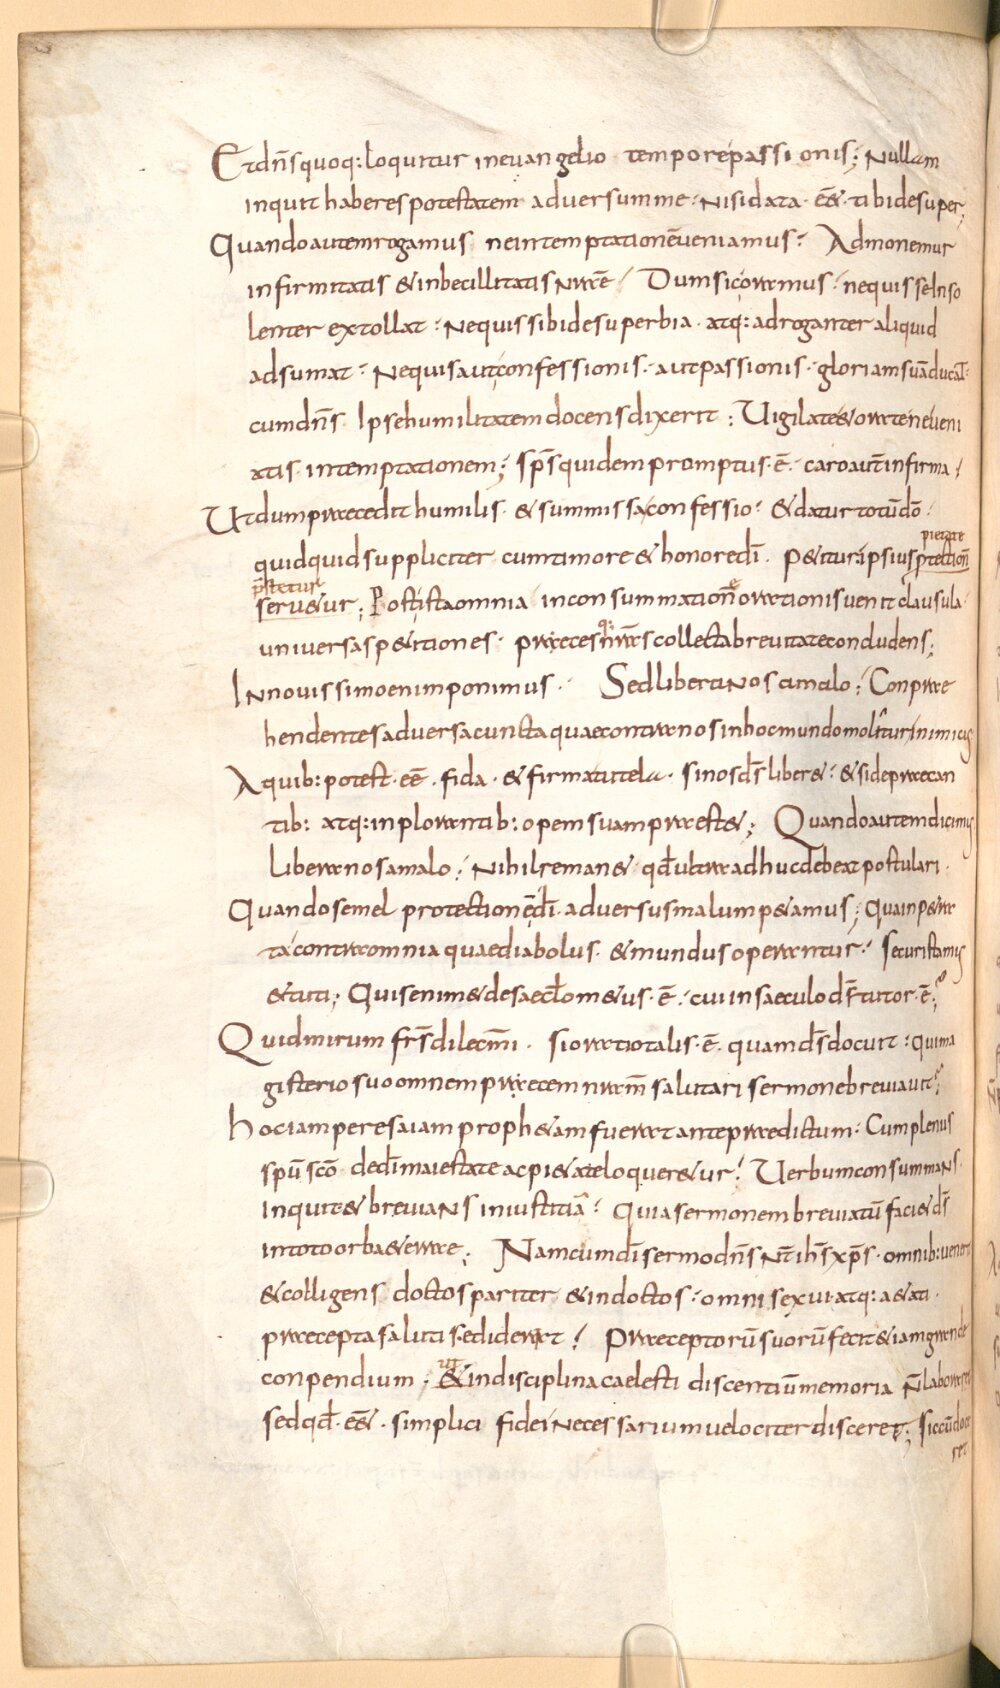 Et dn̄s quoq: loquitur in euangelio tempore passionis; Nullam
inquit haberes potestatem aduersum me. Nisi data. eēt. tibi desuper;
Quando autem rogamus ne in temptationē ueniamus. Admonemur
infirmitatis & inbecillitatis nrāe. Dum sic oramus. ne quis se inso
lenter extollat. Ne quis sibi de superbia. atq: adroganter aliquid
adsumat. Ne quis aut confessionis. aut passionis. gloriam suā ducat.
cum dn̄s Ipse humilitatem docens dixerit; Uigilate & orate ne ueni
atis. in temptationem; sp̄s quidem promptus. ē. caro aut̄ infirma.
Ut dum praecedit humilis. & summissa confessio. & datur totū dō.
quidquid suppliciter cum timore & honore dī. petitur. ipsius protectionē
pietate
p̄stetur
seruetur; Post ista omnia in consummationē orationis uenit clausula
uniuersas petitiones. praeces q: nrās collecta breuitate concludens;
In nouissimo enim ponimus. Sed libera nos a malo; Conprae
hendentes aduersa cuncta quae contra nos in hoc mundo molitur inimicus
A quib: potest. eē. fida. & firma tutela. si nos ds̄ liberet. & si depraecan
tib: atq: inplorantib: opem suam praestet; Quando autem dicimus
Libera nos a malo; Nihil remanet qd̄ ultra adhuc debeat postulari.
Quando semel protectionē dī. aduersus malum petamus; Qua inpetra
ta contra omnia quae diabolus. & mundus operantur. Securi stamus
& tuti; Quis enim & de saeclo metus. ē. cui in saeculo ds̄ tutor. ē;
Quid mirum frs̄ dilectissimi. si oratio talis. ē. quam ds̄ docuit. qui ma
gisterio suo omnem praecem nram̄ salutari sermone breuiauit;
Hoc iam per esaiam prophetam fuerat ante praedictum. Cum plenus
spū scō de dī maiestate ac pietate loqueretur. Uerbum consummans.
inquit & breuians in iustitiā. Quia sermonem breuiatū faciet ds̄
in toto orbae terrae; Nam cum dī sermo dn̄s nr̄ ihs̄ xps̄. omnib: uenerit
& colligens doctos pariter & indoctos. omni sexui. atq: aetati.
praecepta salutis ediderit. Praeceptorū suorū fecit & iam grande
conpendium. ut & in disciplina caelesti discentiū memoria n̄ laboraret
sed qd̄. eēt. simplici fidei necessarium uelociter disceret; sic cū doce
ret